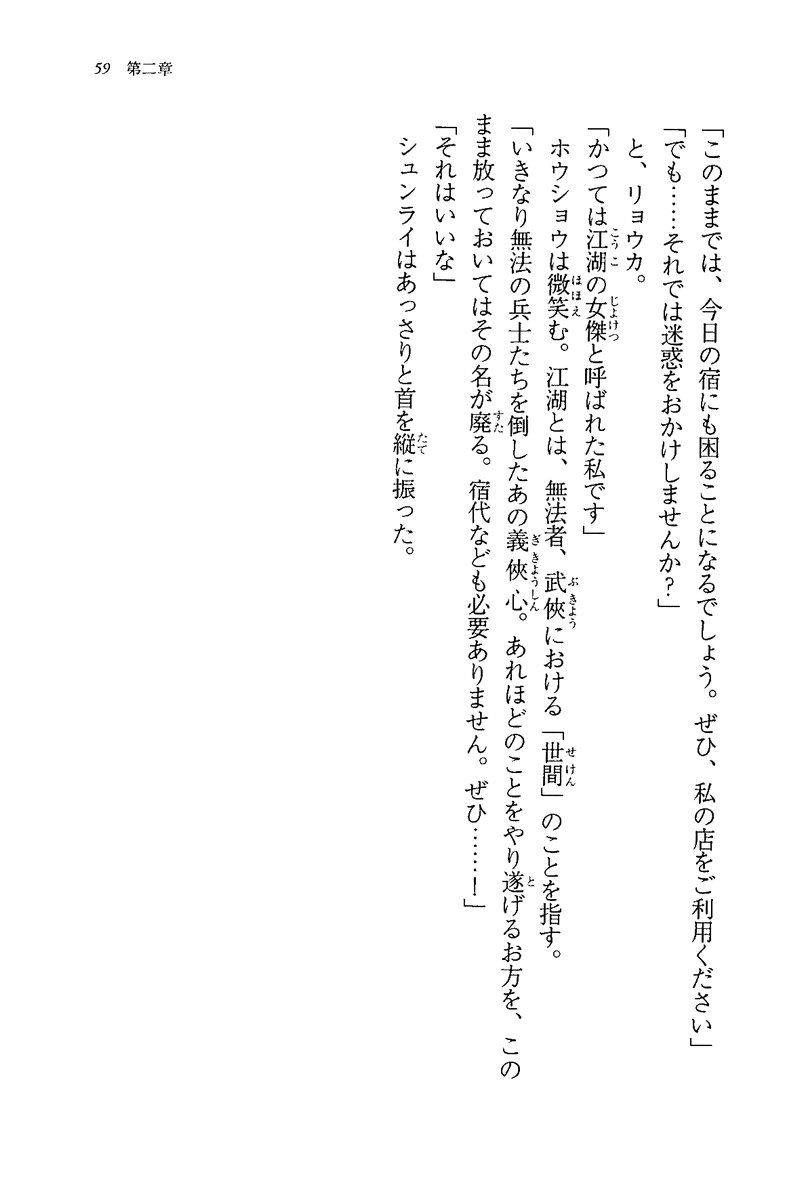 59 第二章
「このままでは、今日の宿にも困ることになるでしょう。ぜひ、私の店をご利用ください」
「でも……それでは迷惑をおかけしませんか？」
と、リョウカ。
「かつては江湖の女傑と呼ばれた私です」
ホウショウは微笑む。江湖とは、無法者、武侠における「世間」のことを指す。
「いきなり無法の兵士たちを倒したあの義俠心。あれほどのことをやり遂げるお方を、この
まま放っておいてはその名が廃る。宿代なども必要ありません。ぜひ……！」
「それはいいな」
シュンライはあっさりと首を縦に振った。